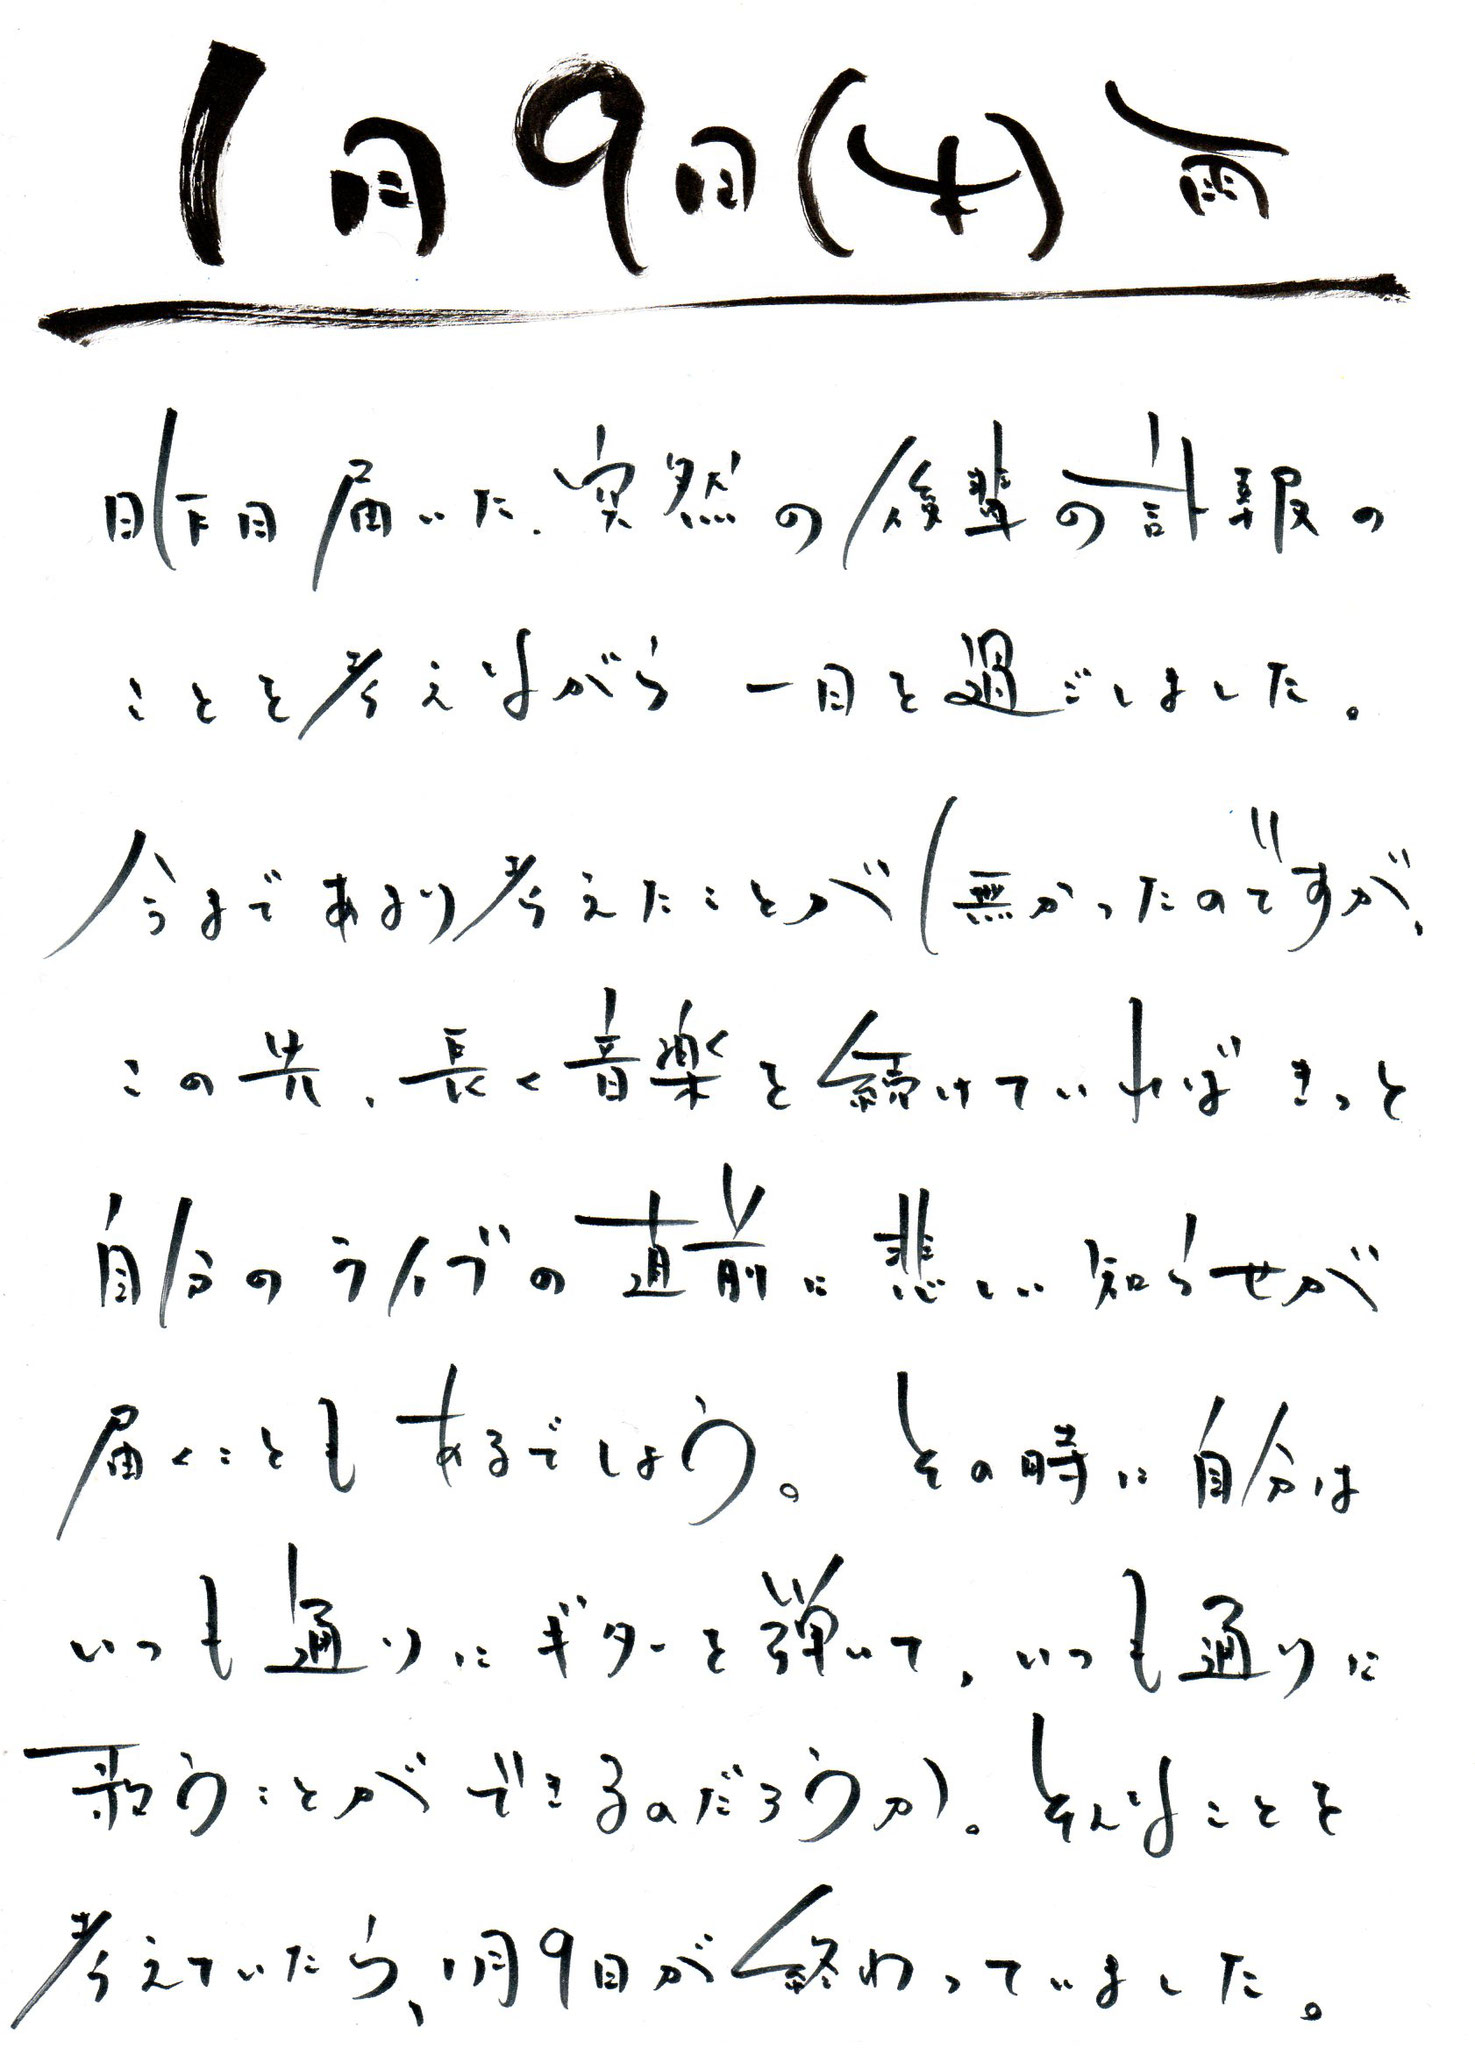 1月9日(木)雨
昨日届いた、突然の後輩の訃報の
ことを考えながら 一日を過ごしました。
今まであまり考えたことが無かったのですが、
この先、長く音楽を続けていればきっと
自分のライブの直前に悲しい知らせが
届くこともあるでしょう。その時に自分は
いつも通りにギターを弾いて、いつも通りに
歌うことができるのだろうか。そんなことを
考えていたら、1月9日が終わっていました。